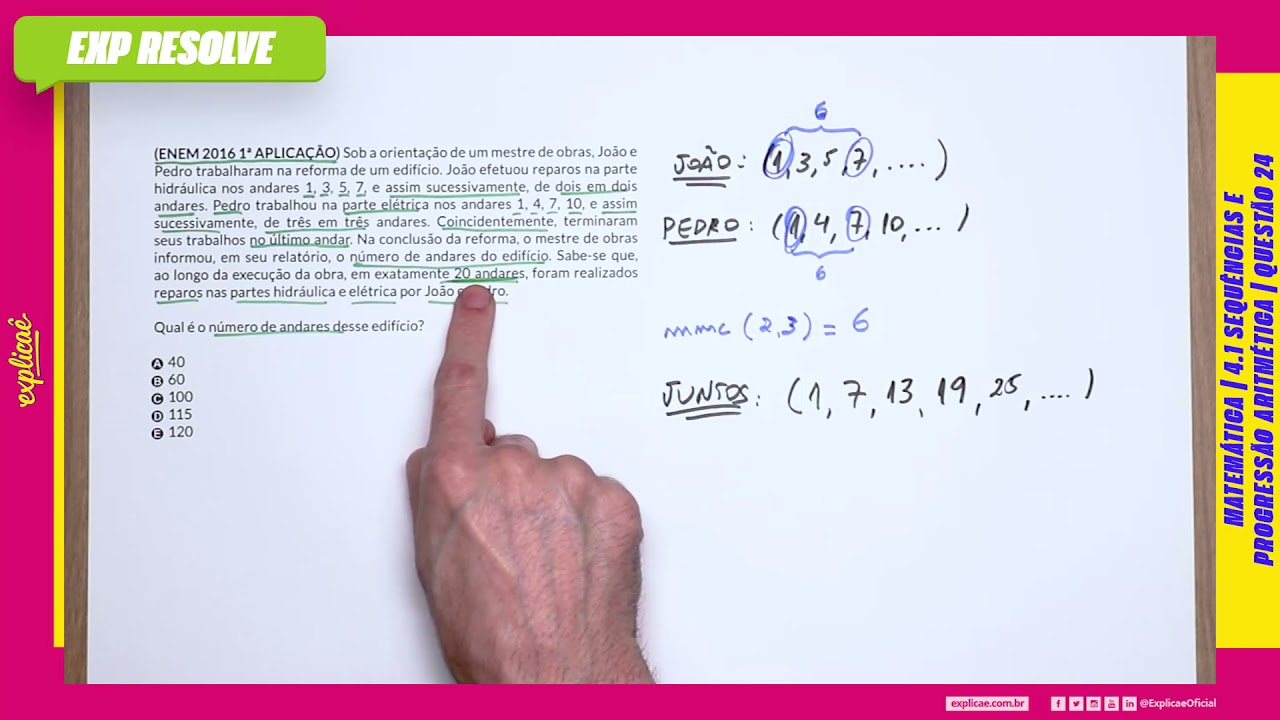 EXP RESOLVE
(ENEM 2016 1ª APLICAÇÃO) Sob a orientação de um mestre de obras, João e
Pedro trabalharam na reforma de um edifício. João efetuou reparos na parte
hidráulica nos andares 1, 3, 5, 7, e assim sucessivamente, de dois em dois
andares. Pedro trabalhou na parte elétrica nos andares 1, 4, 7, 10, e assim
sucessivamente, de três em três andares. Coincidentemente, terminaram
seus trabalhos no último andar. Na conclusão da reforma, o mestre de obras
informou, em seu relatório, o número de andares do edifício. Sabe-se que,
ao longo da execução da obra, em exatamente 20 andares, foram realizados
reparos nas partes hidráulica e elétrica por João
Qual é o número de andares desse edifício?
A 40
B 60
C 100
D 115
E 120
6
JOÃO: (1, 3, 5, 7, ....)
PEDRO: (1, 4, 7, 10, ...)
6
mmc (2,3) = 6
JUNTOS: (1, 7, 13, 19, 25, ....)
explicaê
MATEMÁTICA | 4.1 SEQUÊNCIAS E
PROGRESSÃO ARITMÉTICA | QUESTÃO 24
explicae.com.br
@ExplicaeOficial